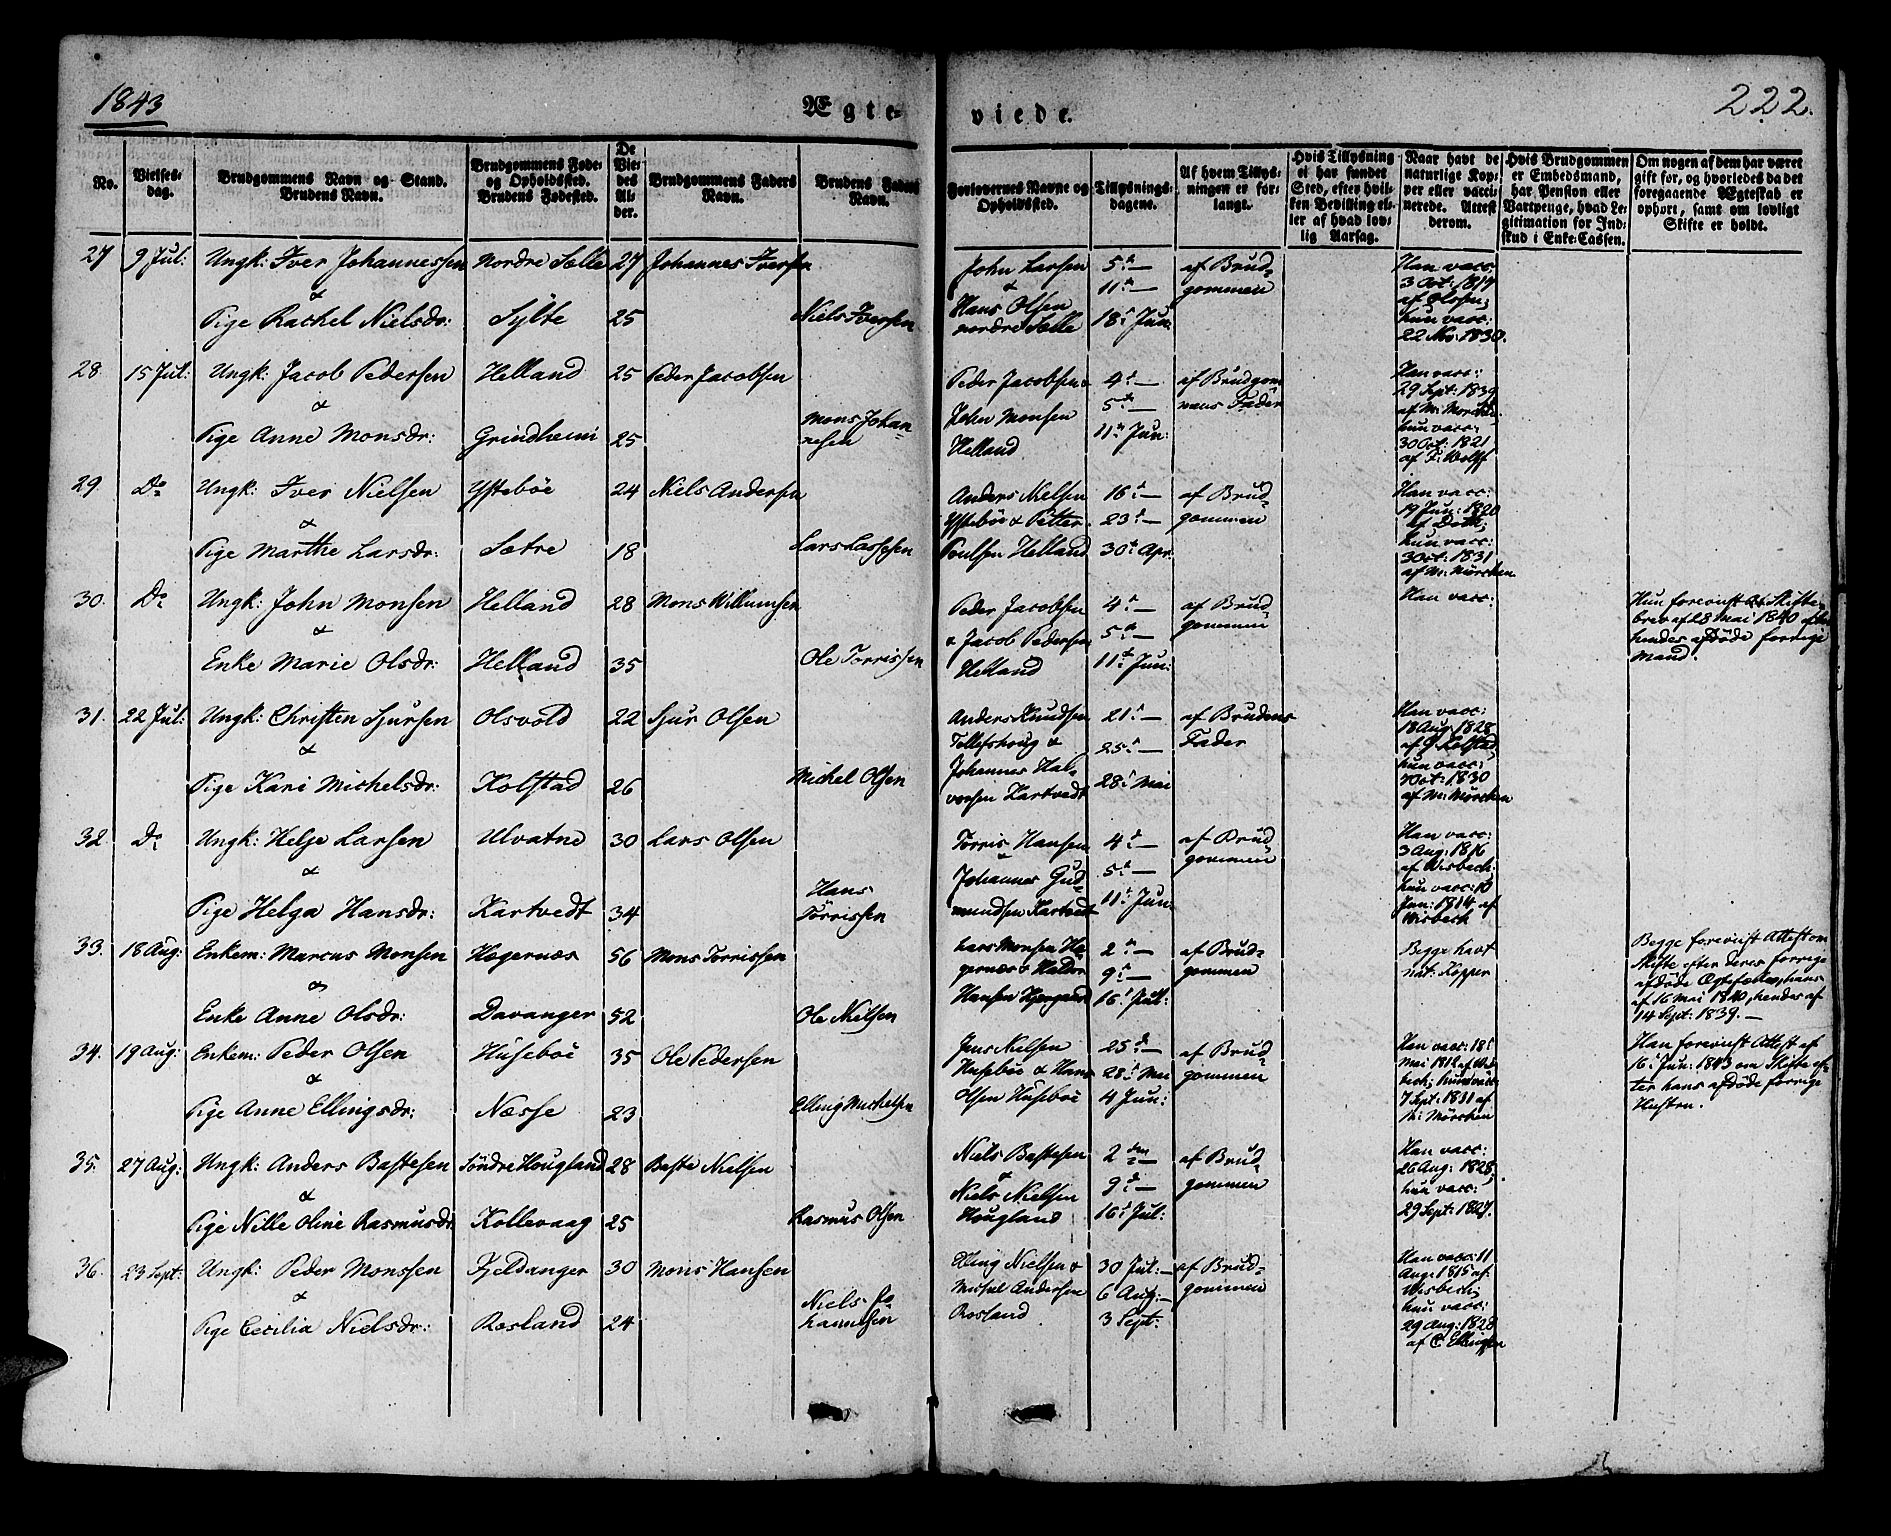 1843
Ægteviede.
222.
No.
Vielses-
dag.
Brudgommens Navn og Stand.
Brudens Navn.
Brudgommens Føde-
og Opholdssted.
Brudens Fødested.
De
Vie-
des
Al-
der.
Brudgommens Faders
Navn.
Brudens Faders
Navn.
Forlovernes Navne og
Opholdssted.
Tillysnings-
dagene.
Af hvem Tillys-
ningen er for-
langt.
Hvis Tillysning
ei har fundet
Sted, efter hvil-
ken Bevilling el-
ler af hvad lov-
lig Aarsag.
Naar havt de
naturlige Kop-
per eller vacci-
nerede. Attest
derom.
Hvis Brudgommen
er Embedsmand,
har Pension eller
Vartpenge, hvad Le-
gitimation for Ind-
skud i Enke-Cassen.
Om nogen af dem har været
gift før, og hvorledes da det
foregaaende Ægteskab er
ophørt, samt om lovligt
Skifte er holdt.
27 9 Jul: Ungk: Iver Johannessen Nordre Sælle 27 Johannes Iversen
&
Pige Rachel Nielsdr: Sylte 25 Niels Iversen
John Larsen
&
Hans Olsen
nordre Sælle
5te —
11te —
18de Jun:
af Brud-
gommen
Han vacc:
3 Oct: 1817
af Olsen;
hun vacc:
22 No: 1830.
28 15 Jul: Ungk: Jacob Pedersen Helland 25 Peder Jacobsen
&
Pige Anne Monsdr: Grindheim 25 Mons Johan-
nesen
Peder Jacobsen &
John Monsen
Helland
4de —
5te —
11te Jun:
af Brudgom
mens Fader
Han vacc:
29 Sept: 1839
af M:
hun vacc:
30 Oct: 1821
af F: Wolff
29. Do Ungk: Iver Nielsen Ystebøe 24 Niels Andersen
&
Pige Marthe Larsdr: Sætre 18 Lars Lassesen
Anders Nielsen
Ystebøe & Petter
Poulsen Helland
16de —
23de —
30te Apr.
af Brud-
gommen
Han vacc:
19 Jun: 1820
af Doth;
hun vacc:
3 Oct: 1831
af M: Mörchen
30. Do Ungk: John Monsen Helland 28 Mons Willumsen
&
Enke Marie Olsdr: Helland 35 Ole Torrissen
Peder Jacobsen
& Jacob Pedersen
Helland
4de —
5te —
11te Jun:
af Brud-
gommen
Han vacc:
Hun foreviist Skifte-
brev af 28 Mai 1840 efter
hendes afdøde forrige
Mand.
31. 22 Jul: Ungk: Christen Sjursen Olsvold 22 Sjur Olsen
&
Pige Kari Michelsdr: Kolstad 26 Michel Olsen
Anders Knudsen
Tollefshoug &
Johannes Hal-
vorsen Kartvedt
21de —
25de —
28de Mai
af Brudens
Fader
Han vacc:
18 Aug 1828
af G Kolstad
hun vacc:
Oct: 1830
af M: Mörchen
32 Do Ungk: Helje Larsen Ulvatne 30 Lars Olsen
&
Pige Helga Hansdr: Kartvedt 34 Hans
Törrissen
Torris Hansen
&
Johannes Gud-
mundsen Kartvedt
4de —
5te —
11te Jun:
af Brud
gommen
Han vacc:
3 Aug: 1816
af Wisbech;
hun vacc: 10
Jun: 1814 af
Wisbech
33. 18 Aug: Enkem: Marcus Monsen Hagernæs 56 Mons Torrissen
&
Enke Anne Olsdr: Davanger 52 Ole Nielsen
Lars Monsen Ha-
gernæs & Haldor
Hansen
2den —
9de —
16de Jul:
af Brud-
gommen
Begge havt
nat: Kopper
Begge foreviist Attest om
Skifte efter deres forrige
afdøde Ægtefæller, hans
af 16 Mai 1840, hendes af
14 Sept: 1839. —
34. 19 Aug: Enkem: Peder Olsen Husebøe 35 Ole Pedersen
&
Pige Anne Ellingsdr: Næsse 23 Elling Michelsen
Jens Nielsen
Husebøe & Hans
Olsen Husebøe
25de —
28de Mai
4 Jun:
af Brud-
gommen
Han vacc: 18
Mai 1812 af Wis-
bech; hun vacc:
7 Sept: 1831 af
M: Mörchen
Han foreviist Attest af
16de Jun: 1843 om Skifte ef-
ter hans afdøde forrige
Hustru.
35. 27 Aug: Ungk: Anders Bastesen Söndre Hougland 28 Baste Nielsen
&
Pige Nille Oline Rasmusdr: Kollevaag 25 Rasmus Olsen
Niels Bastesen
&
Niels Nielsen
Hougland
2den —
9de —
16de Jul:
af Brud-
gommen
Han vacc:
26 Aug: 1828,
hun vacc:
29 Sept: 1827.
36. 23 Sept: Ungk: Peder Monssen Fjeldanger 30 Mons Hansen
&
Pige Cecilia Nielsdr: Røsland 24 Niels Jo-
hannesen
Elling Nielsen &
Michel Andersen
Rosland
30 Jul: —
6 Aug: —
3 Sept:
af Brud-
gommen
Han vacc: 11
Aug: 1815 af
Wisbech,
hun vacc:
29 Aug: 1828
af C Ellingsen